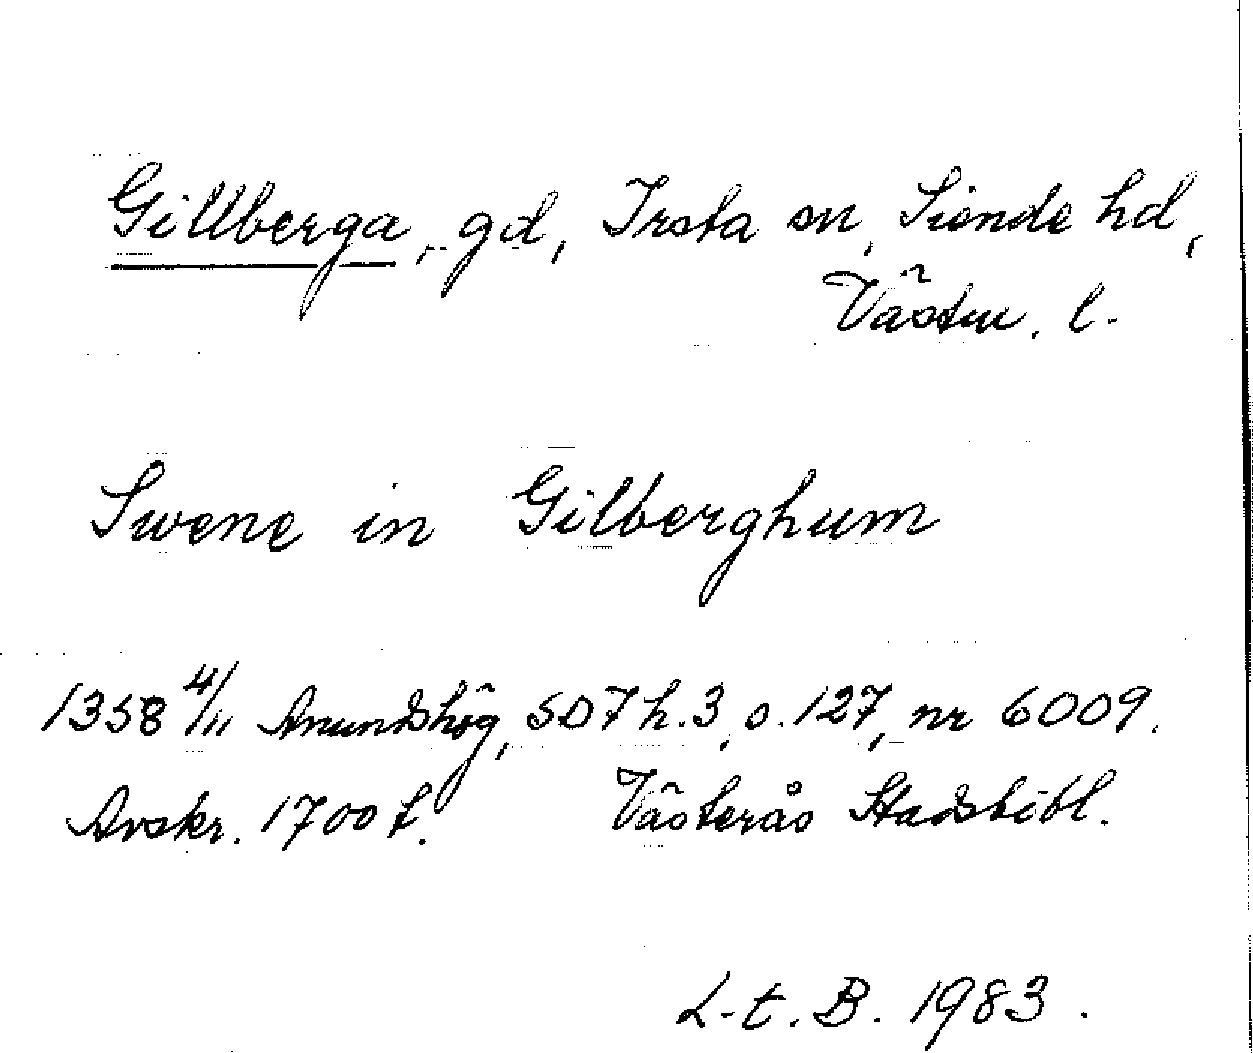 Gillberga, gd, Irsta sn, Siende hd,
Västm. l.
Swene in Gilberghum
1358 4/11 Anundshög, SD 7 h. 3, s. 127, nr 6009.
Avskr. 1700 t. Västerås Stadsbibl.
L-t. B. 1983.